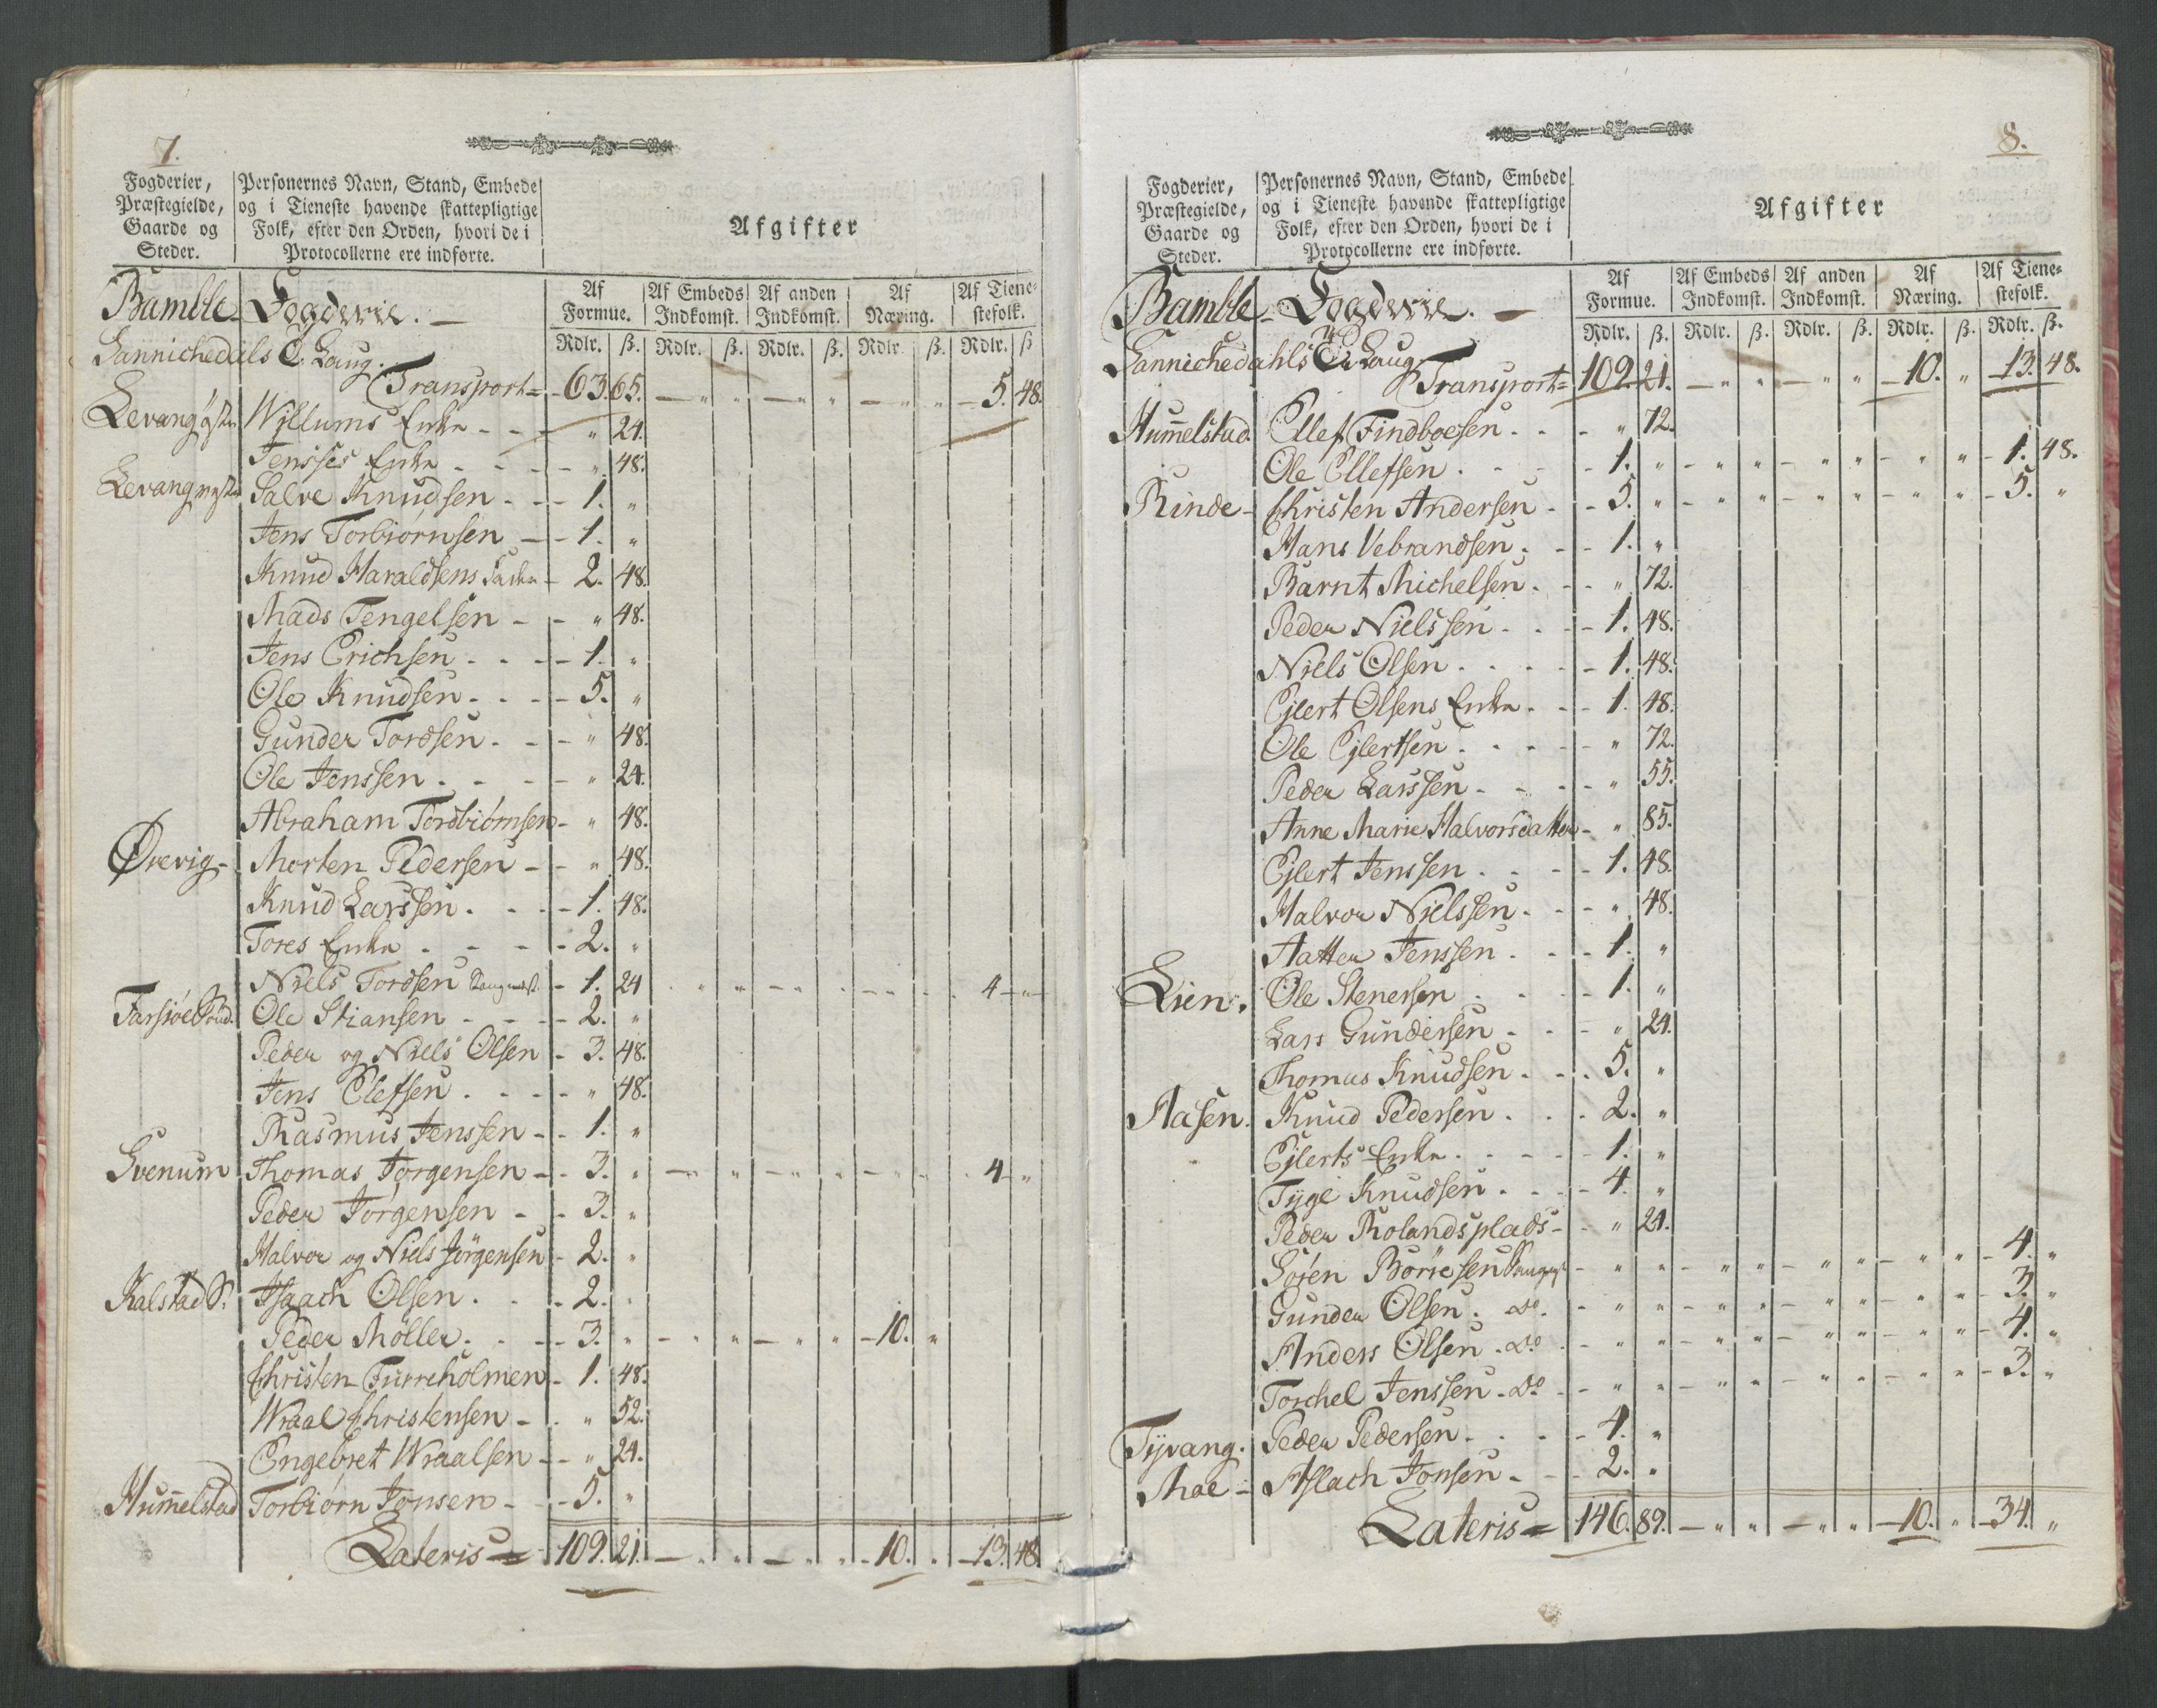 7.
Fogderier,
Præstegielde,
Gaarde og
Steder.
Personernes Navn, Stand, Embede
og i Tieneste havende skattepligtige
Folk, efter den Orden, hvori de i
Protocollerne ere indførte.
Afgifter
Af Formue. Af Embeds Indkomst. Af anden Indkomst. Af Næring. Af Tiene- stefolk.
Rdlr. ß. Rdlr. ß. Rdlr. ß. Rdlr. ß. Rdlr. ß
Bamble Fogderie. —
Sannichedals Laug.
Transport = 63 65. — " " — " " — " " — 5. 48.
Levang Willums Enke - - - " 24
Jenses Enke - - - " 48.
Levang Salve Knudsen - - 1. "
Jens Torbiørnsen - - 1. "
Knud Haraldsens - 2. 48
Mads Tengelsen - - " 48.
Jens Erichsen - - - 1. "
Ole Knudsen - - - 5. "
Gunder Tordsen - - " 48.
Ole Jenssen - - - " 24.
Abraham Tordbiørnsen - " 48.
Ørevig - Morten Pedersen - - " 48.
Knud Larssen - - - 1. 48.
Tores Enke - - - 2. "
Niels Tordsen - 1. 24 - " " - " " - " " - 4 - " -
Farsiøe Ole Stiansen - - - 2. "
Peder og Niels Olsen - 3. 48.
Jens Elefsen - - - " 48.
Rasmus Jenssen - - 1. "
Svenum Thomas Jørgensen - 3. " - " " - " " - " " - 4 - "
Peder Jørgensen - - 3. "
Halvor og Niels Jørgensen - 2. "
Kalstad S. Isaach Olsen - - 2. "
Peder Møller - - - 3. " - " " - " " - 10. "
Christen Furreholmen - 1. 48.
Wraal Christensen - - " 52.
Engebret Wraalsen - - " 24.
Hummelstad Torbiørn Jonsen - - 5. "
Lateris = 109. 21. — " " — " " — 10. " — 13. 48.
8.
Fogderier,
Præstegielde,
Gaarde og
Steder.
Personernes Navn, Stand, Embede
og i Tieneste havende skattepligtige
Folk, efter den Orden, hvori de i
Protocollerne ere indførte.
Afgifter
Af Formue. Af Embeds Indkomst. Af anden Indkomst. Af Næring. Af Tiene- stefolk.
Rdlr. ß. Rdlr. ß. Rdlr. ß. Rdlr. ß. Rdlr. ß.
Bamble - Fogderie. —
Sannichedahls Laug.
Transport = 109 21. — " " — " " — 10. " — 13. 48.
Hummelstad Ellef Findboesen - - " 72.
Ole Ellefsen - - - 1. " - " " - " " - " " - 1. 48.
Rinde - Christen Andersen - - 5. " - " " - " " - " " - 5. "
Hans Vebrandsen - - 1. "
Barnt Michelsen - - " 72.
Peder Nielssen - - - 1. 48.
Niels Olsen - - - 1. 48.
Ejlert Olsens Enke - - 1. 48.
Ole Ejlertsen - - - " 72.
Peder Larssen - - - " 55.
Anne Marie Halvorsdatter - " 85.
Ejlert Jenssen - - - 1. 48.
Halvor Nielssen - - " 48.
Aatter Jenssen - - - 1. "
Lien. Ole Stenersen - - - 1. "
Lars Gundersen - - " 24.
Thomas Knudsen - - 5. "
Aasen. Knud Pedersen - - - 2. "
Ejlerts Enke - - - 1. "
Tyge Knudsen - - - 4. "
Peder Rolandsplads - - " 24.
Sören Börresen - " " - " " - " " - " " - 4. "
Gunder Olsen. do. - " " - " " - " " - " " - 3. "
Anders Olsen. do - " " - " " - " " - " " - 4. "
Torchel Jenssen. do - " " - " " - " " - " " - 3. "
Tyvang. Peder Pedersen - - - 4. "
Moe - Aslach Jonsen - - 2. "
Lateris = 146. 89. — " " — " " — 10. " — 34. "